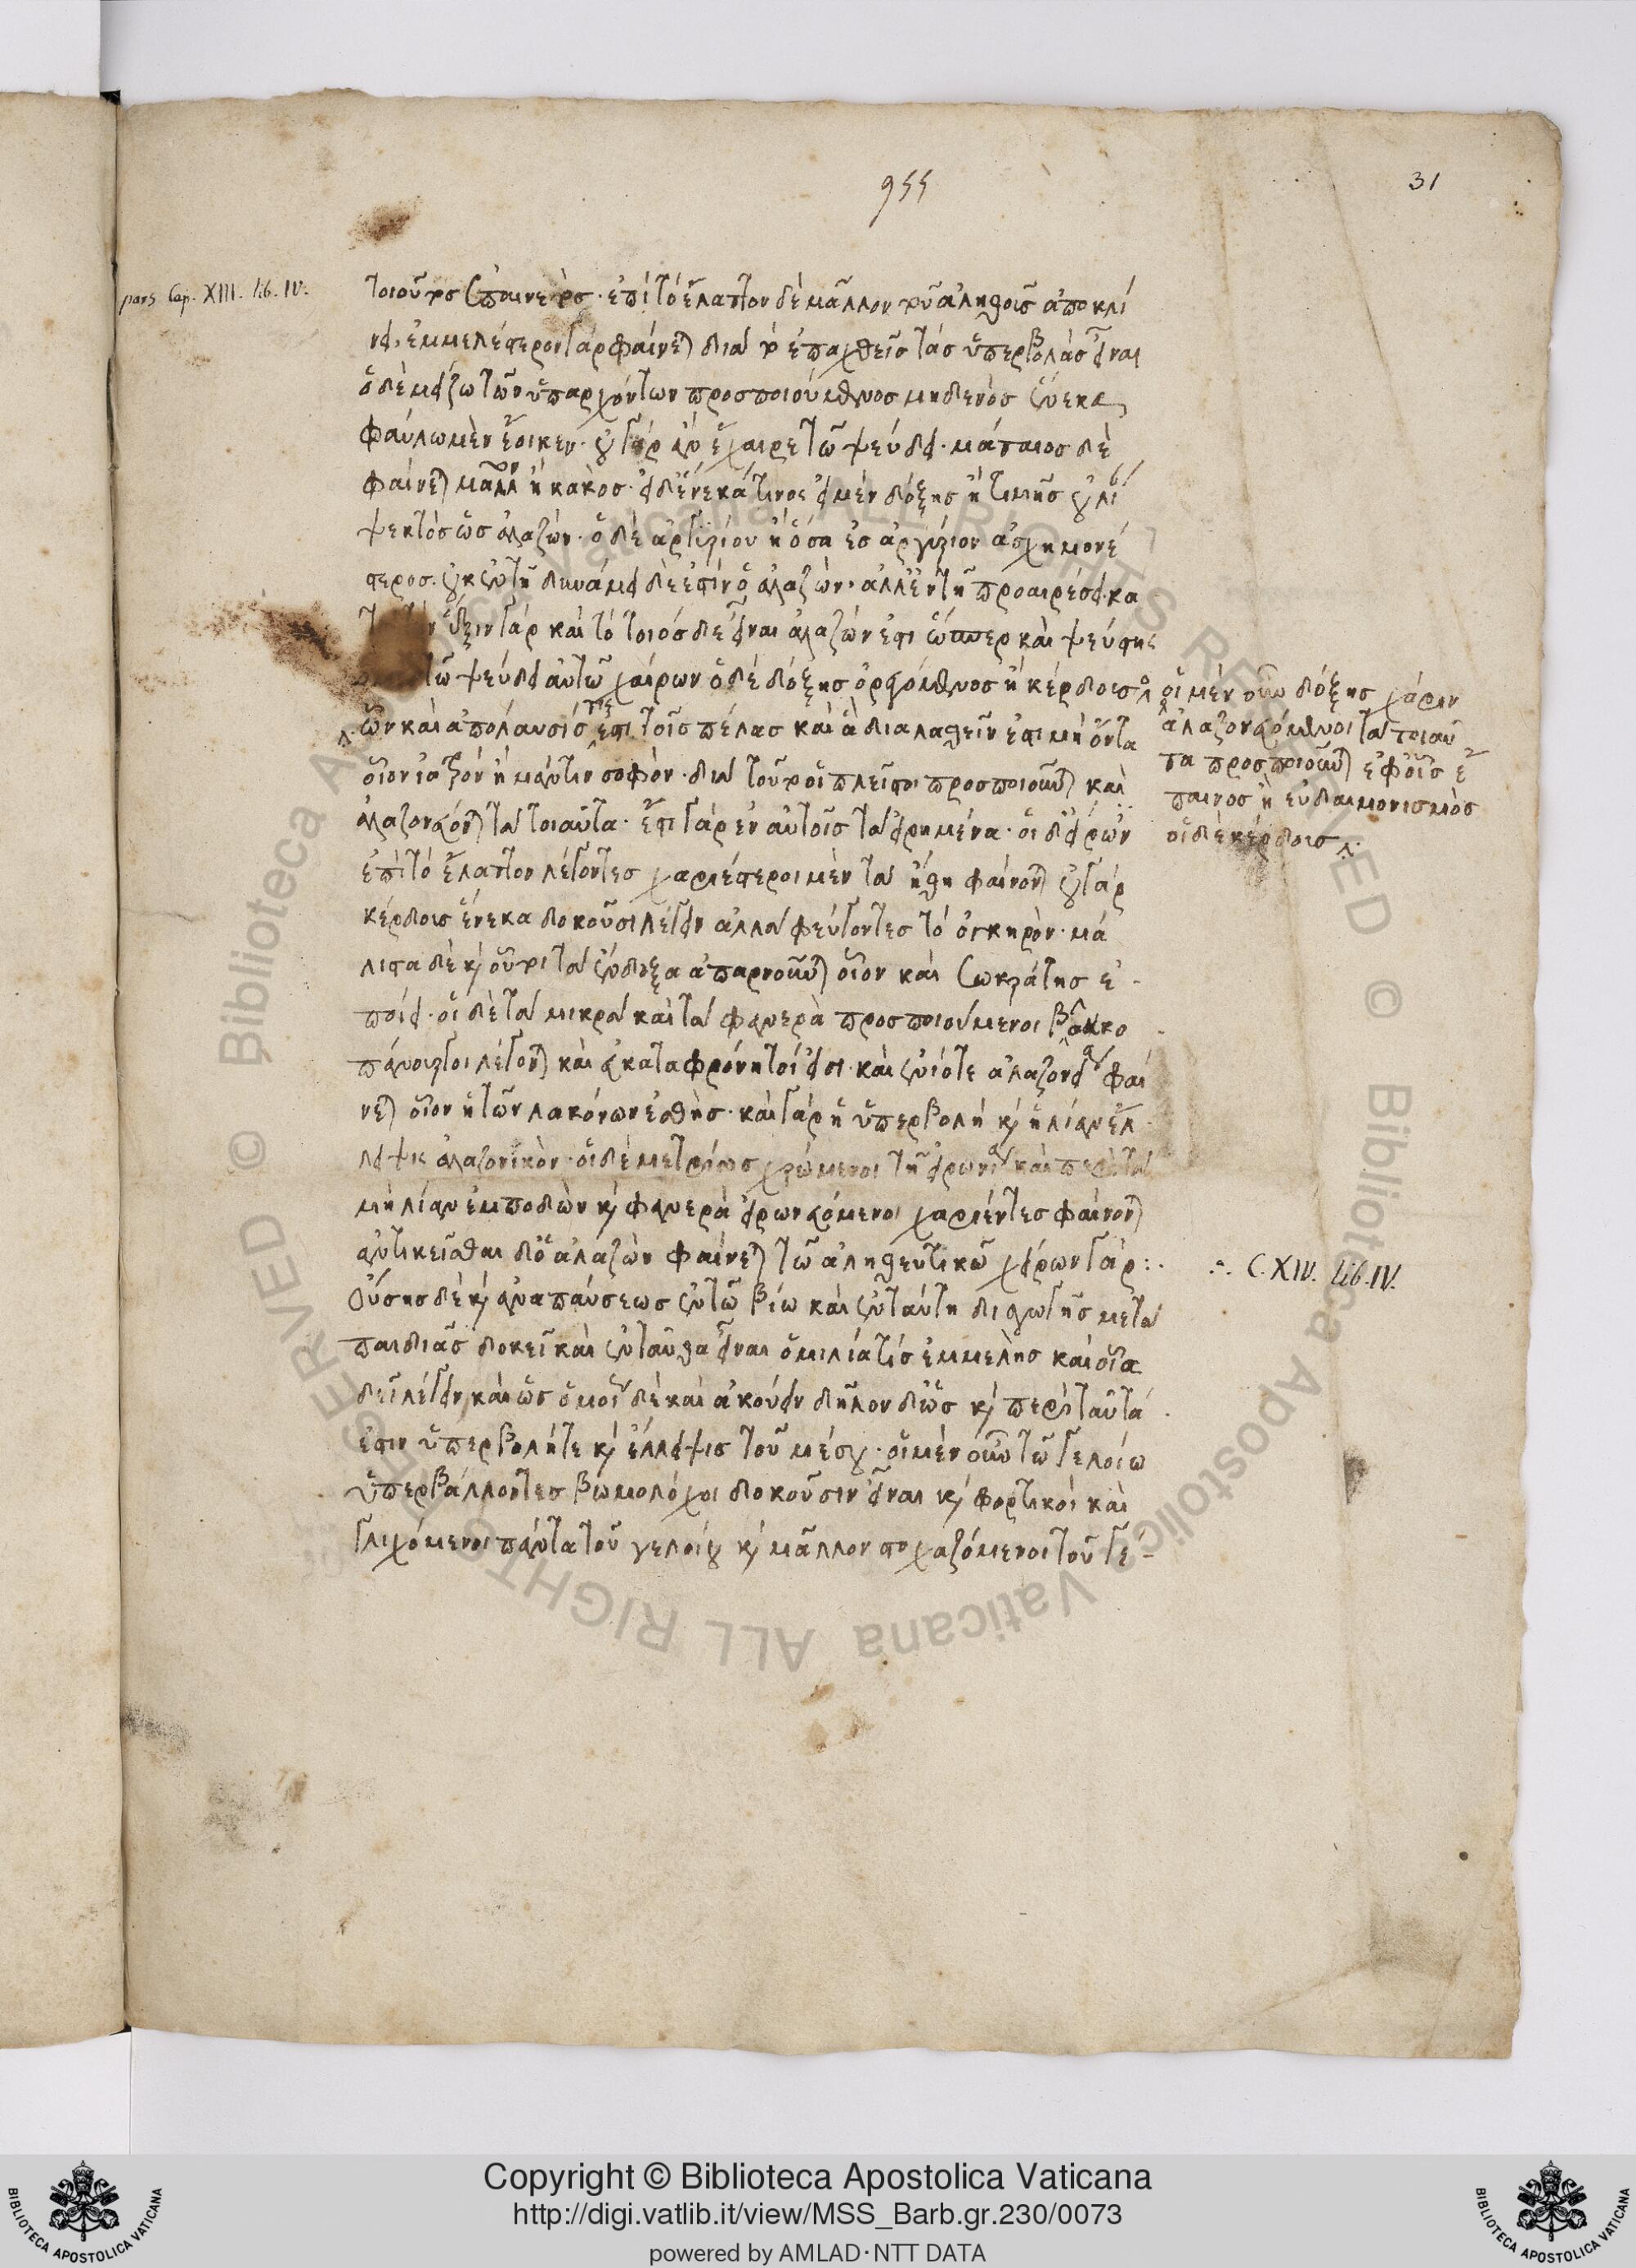 955
31
pars Cap. XIII. lib. IV.
τοιοῦτος ἐπαινετὸς· ἐπὶ τὸ ἔλαττον δὲ μᾶλλον τοῦ ἀληθοῦς ἀποκλί
νει· ἐμμελέστερον γὰρ φαίνεται διὰ τὸ ἐπαχθεῖς τὰς ὑπερβολὰς εἶναι
ὁ δὲ μείζω τῶν ὑπαρχόντων προσποιούμενος μηδενὸς ἕνεκα
φαύλω μὲν ἔοικεν· οὐ γὰρ ἂν ἔχαιρε τῶ ψεύδει· μάταιος δὲ
φαίνεται μᾶλλον ἢ κακὸς· εἰ δ' ἕνεκά τινος ὁ μὲν δόξης ἢ τιμῆς οὐ λί
ψεκτὸς ὡς ἀλαζών· ὁ δὲ ἀργυρίου ἢ ὅσα εἰς ἀργύριον ἀσχημονέ
στερος· οὐκ ἐν τῆ δυνάμει δὲ ἐστὶν ὁ ἀλαζὼν· ἀλλ' ἐν τῆ προαιρέσει· κα
ἕξιν γὰρ καὶ τὸ τοιόσδε εἶναι ἀλαζών ἐστι ὥσπερ καὶ ψεύστης
τῶ ψεύδει αὐτῶ χαίρων ὁ δὲ δόξης ὀρεγόμενος ἢ κέρδους
ὧν καὶ ἀπόλαυσίς τις ἐστι τοῖς πέλας καὶ ἃ διαλαθεῖν ἐστι μὴ ὄντα
οἷον ἰατρὸν ἢ μάντιν σοφὸν· διὰ τοῦτο οἱ πλεῖστοι προσποιοῦνται καὶ
ἀλαζονεύονται τὰ τοιαῦτα· ἔστι γὰρ ἐν αὐτοῖς τὰ εἰρημένα· οἱ δ' εἴρων
ἐπὶ τὸ ἔλαττον λέγοντες χαριέστεροι μὲν τὰ ἤθη φαίνονται οὐ γὰρ
κέρδους ἕνεκα δοκοῦσι λέγειν ἀλλὰ φεύγοντες τὸ ὀγκηρὸν· μά
λιστα δὲ καὶ οὗτοι τὰ ἔνδοξα ἀπαρνοῦνται οἷον καὶ Σωκράτης ἐ
ποίει· οἱ δὲ τὰ μικρὰ καὶ τὰ φανερὰ προσποιούμενοι βαυκο
πάνουργοι λέγονται καὶ εὐκαταφρόνητοί εἰσι· καὶ ἐνίοτε ἀλαζονεία φαί
νεται οἷον ἡ τῶν λακόνων ἐσθὴς· καὶ γὰρ ἡ ὑπερβολὴ καὶ ἡ λίαν ἔλ
λειψις ἀλαζονικὸν· οἱ δὲ μετρίως χρώμενοι τῆ εἰρωνεία καὶ περὶ τὰ
μὴ λίαν ἐμποδὼν καὶ φανερὰ εἰρωνευόμενοι χαρίεντες φαίνονται
ἀντικεῖσθαι δ' ὁ ἀλαζὼν φαίνεται τῶ ἀληθευτικῶ χείρων γὰρ:·
Οὔσης δὲ καὶ ἀναπαύσεως ἐν τῶ βίω καὶ ἐν ταύτη διαγωγῆς μετὰ
παιδιᾶς δοκεῖ καὶ ἐνταῦθα εἶναι ὁμιλία τίς ἐμμελὴς καὶ οἷα
δεῖ λέγειν καὶ ὡς ὁμοίως δὲ καὶ ἀκούειν δῆλον δ' ὡς καὶ περὶ ταῦτά
ἐστιν ὑπερβολή τε καὶ ἔλλειψις τοῦ μέσου· οἱ μὲν οὖν τῶ γελοίω
ὑπερβάλλοντες βωμολόχοι δοκοῦσιν εἶναι καὶ φορτικοὶ καὶ
γλιχόμενοι πάντα τοῦ γελοίου καὶ μᾶλλον στοχαζόμενοι τοῦ γέ-
οἱ μὲν οὖν δόξης χάριν
ἀλαζονευόμενοι τὰ τοιαῦ
τα προσποιοῦνται ἐφ' οἷς ἔ
παινος ἢ εὐδαιμονισμὸς
οἱ δὲ κέρδους
∴ C. XIV. lib. IV.
Copyright © Biblioteca Apostolica Vaticana
http://digi.vatlib.it/view/MSS_Barb.gr.230/0073
powered by AMLAD·NTT DATA
BIBLIOTECA APOSTOLICA VATICANA
BIBLIOTECA APOSTOLICA VATICANA
© Biblioteca Apostolica Vaticana ALL RIGHTS RESERVED © Biblioteca Apostolica Vaticana ALL RIGHTS RESERVED